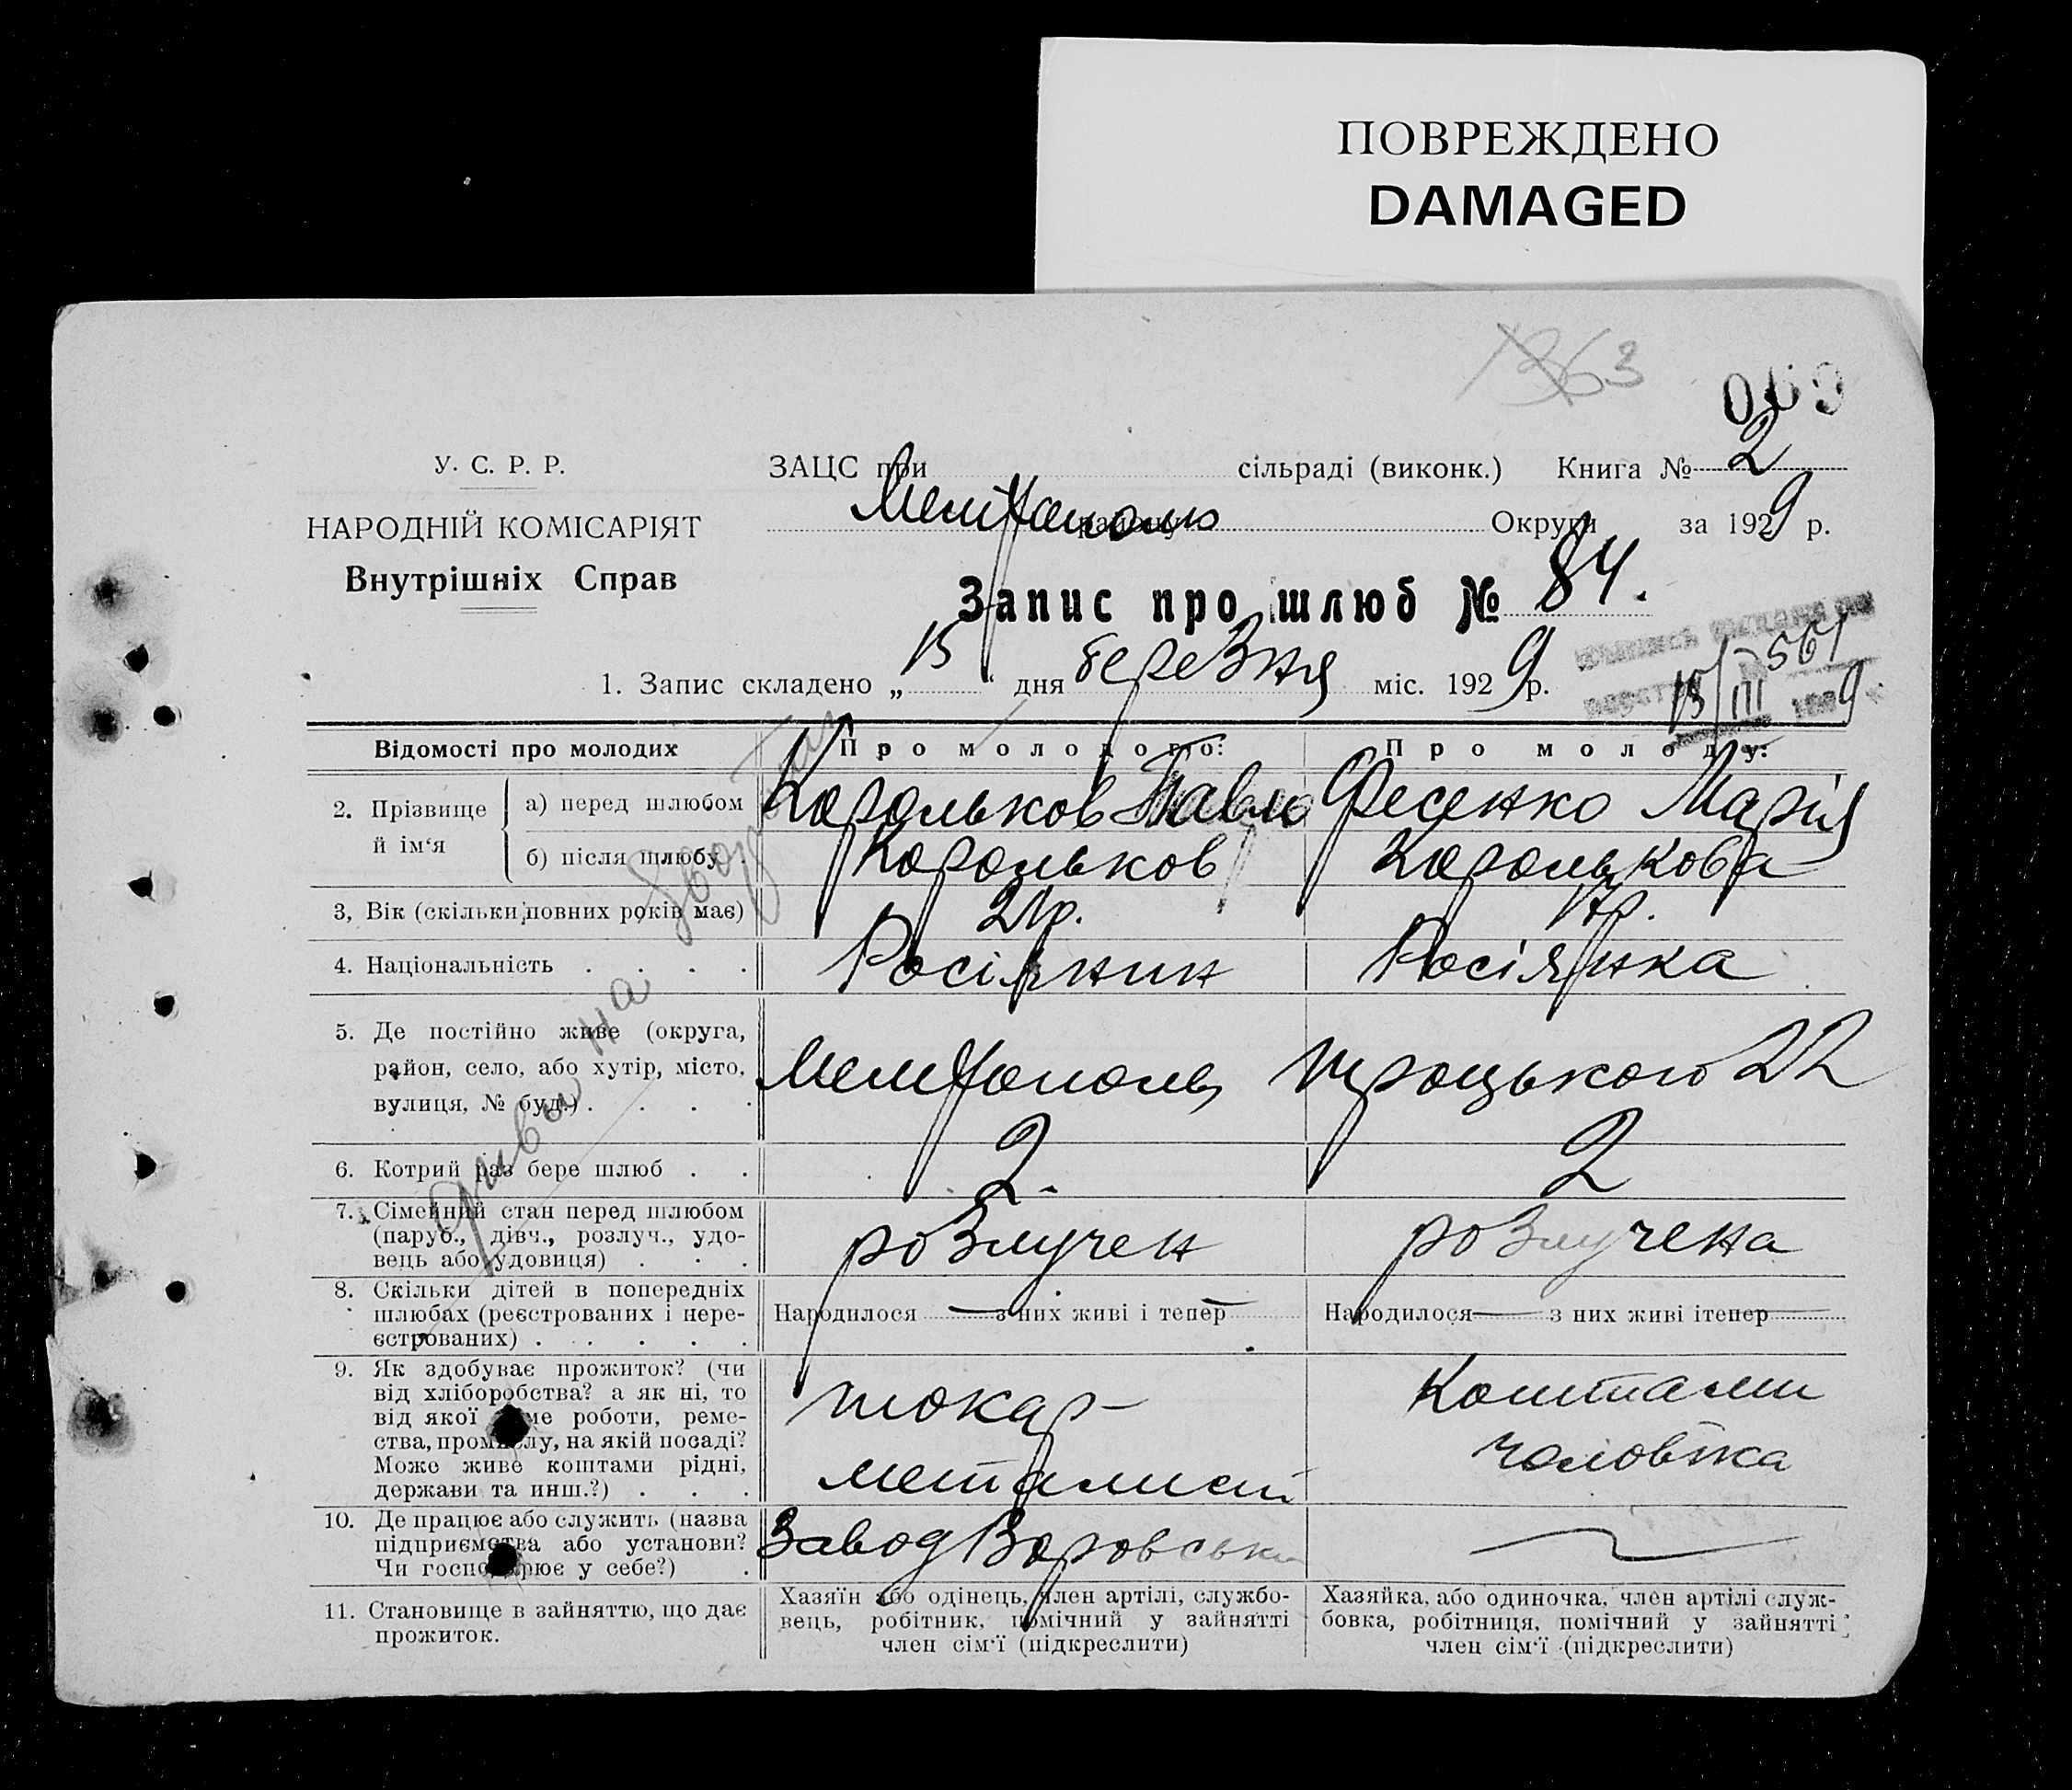 ПОВРЕЖДЕНО
DAMAGED
1363
069
У. С. Р. Р.
НАРОДНІЙ КОМІСАРІЯТ
Внутрішніх Справ
ЗАЦС при сільраді (виконк.) Книга № 2
району Округи за 1929 р.
Запис про шлюб № 84.
1. Запис складено „15“ дня березня міс. 1929 р.
561
15/III 1929
Відомості про молодих Про молодого: Про молоду:
2. Прізвище й ім'я
а) перед шлюбом Корольков Павло Фесенко Марія
б) після шлюбу Корольков Королькова
3, Вік (скільки повних років має) 21р. 17р.
4. Національність Росіянин Росіянка
5. Де постійно живе (округа,
район, село, або хутір, місто,
вулиця, № буд.) Мелітополь Троцького 22
6. Котрий раз бере шлюб 2. 2
7. Сімейний стан перед шлюбом
(паруб., дівч., розлуч., удо-
вець або удовиця) розлучен розлучена
8. Скільки дітей в попередніх
шлюбах (реєстрованих і нере-
єстрованих) Народилося — з них живі і тепер — Народилося — з них живі ітепер —
9. Як здобуває прожиток? (чи
від хліборобства? а як ні, то
від якої саме роботи, реме-
ства, промислу, на якій посаді?
Може живе коштами рідні,
держави та инш.?)
токар-
металист
Коштами
чоловіка
10. Де працює або служить (назва
підприємства або установи?
Чи господарює у себе?)
Завод Воровськ
11. Становище в зайняттю, що дає
прожиток.
Хазяїн або одінець, член артілі, службо-
вець, робітник, помічний у зайнятті
член сім'ї (підкреслити)
Хазяйка, або одиночка, член артілі служ-
бовка, робітниця, помічний у зайнятті
член сім'ї (підкреслити)